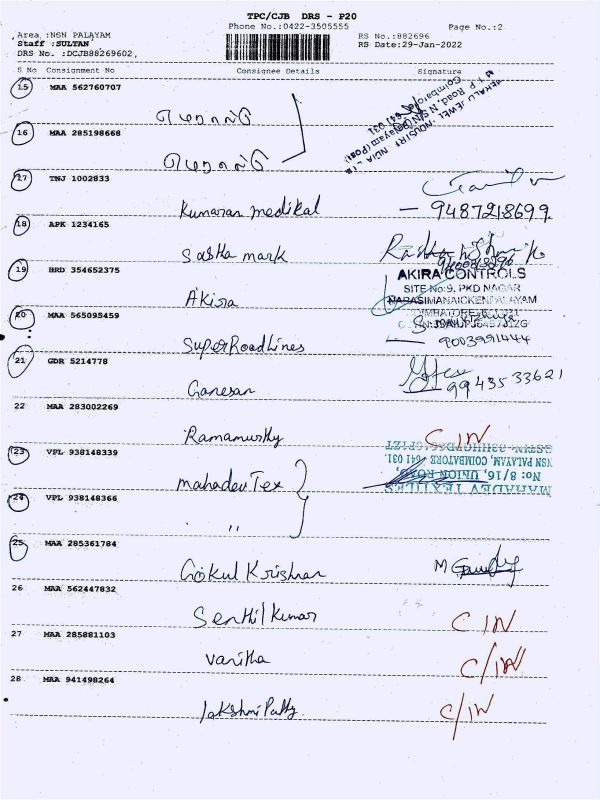 TPC/CJB DRS - P20
Phone No.:0422-3505555
Page No.:2
Area :NSN PALAYAM
Staff :SULTAN
DRS No. :DCJB88269602,
RS No.:882696
RS Date:29-Jan-2022
S No Consignment No Consignee Details Signature
15 MAA 562760707
16 MAA 285198668
17 TNJ 1002833
Kumaran medikal - 9487218699
18 APK 1234165
Sastha mark
19 BRD 354652375
Akira
AKIRA CONTROLS
SITE No:9, PKD NAGAR
NARASIMANAICKENPALAYAM
20 MAA 565095459
SuperRoadLines - 9003991444
21 GDR 5214778
Ganesan 9943533621
22 MAA 283002269
Ramamurthy C IN
23 VPL 938148339
Mahadev Tex
MAHADEV TEXTILES
No: 8/16, UNION ROAD,
NSN PALAYAM, COIMBATORE - 641 031.
24 VPL 938148366
"
25 MAA 285361784
Gokul Krishnan
26 MAA 562447832
Senthil Kumar C IN
27 MAA 285881103
Vanitha C/IN
28 MAA 941498264
Lakshmi Patty C/IN